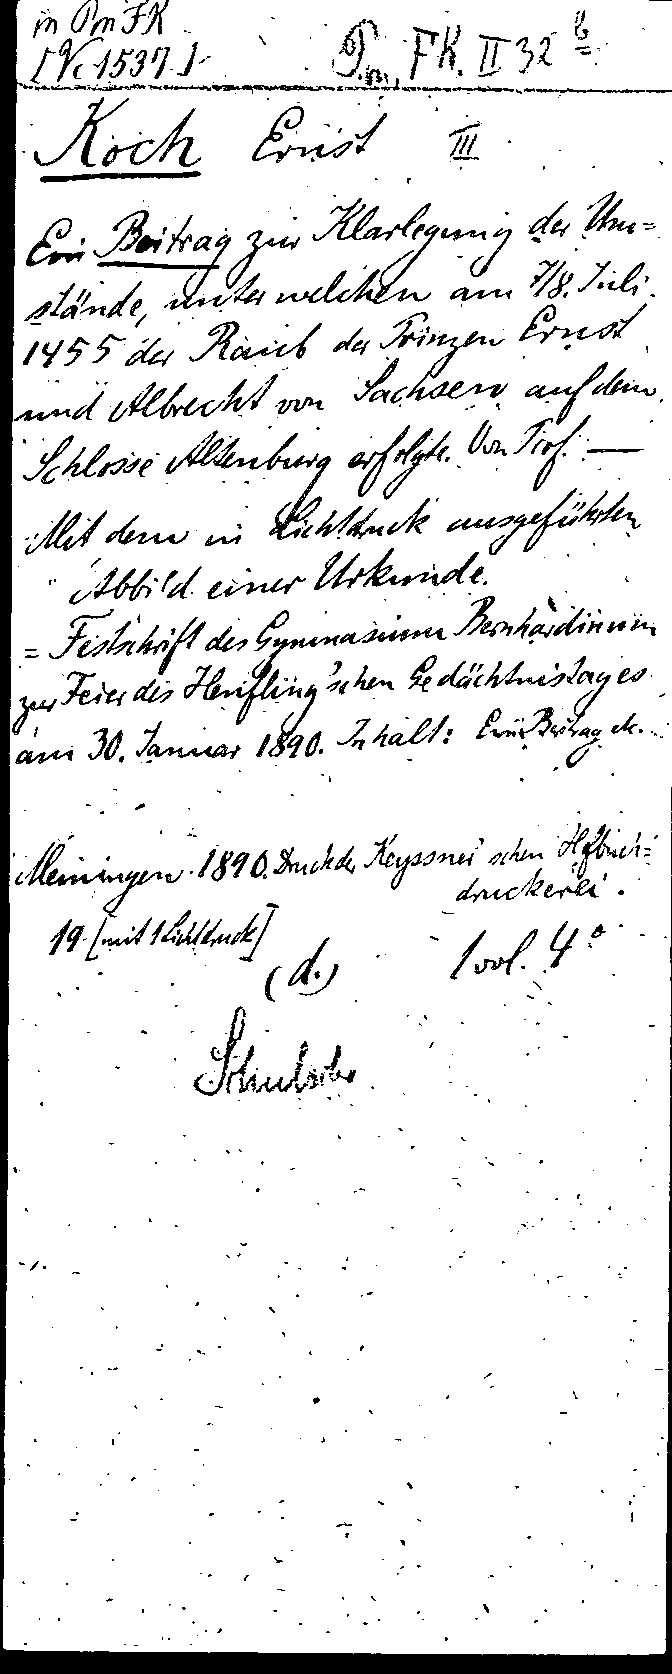 in Pm FK
[Vc 1537]
Pm, FK. II 32 b
Koch Ernst III
Ein Beitrag zur Klarlegung der Um=
stände, unter welchen am 7/8. Juli
1455 der Raub der Prinzen Ernst
und Albrecht von Sachsen auf dem
Schlosse Altenburg erfolgte. Von Prof. —
Mit dem in Lichtdruck ausgeführten
Abbild einer Urkunde.
= Festschrift des Gymnasium Bernhardinum
zur Feier des Henfling'schen Gedächtnistages
am 30. Januar 1890. Inhalt: Ein Beitrag etc.
Meiningen. 1890. Druck der Keyssner'schen Hofbuch=
druckerei.
19. [mit 1 Lichtdruck]
(d.) 1 vol. 4°